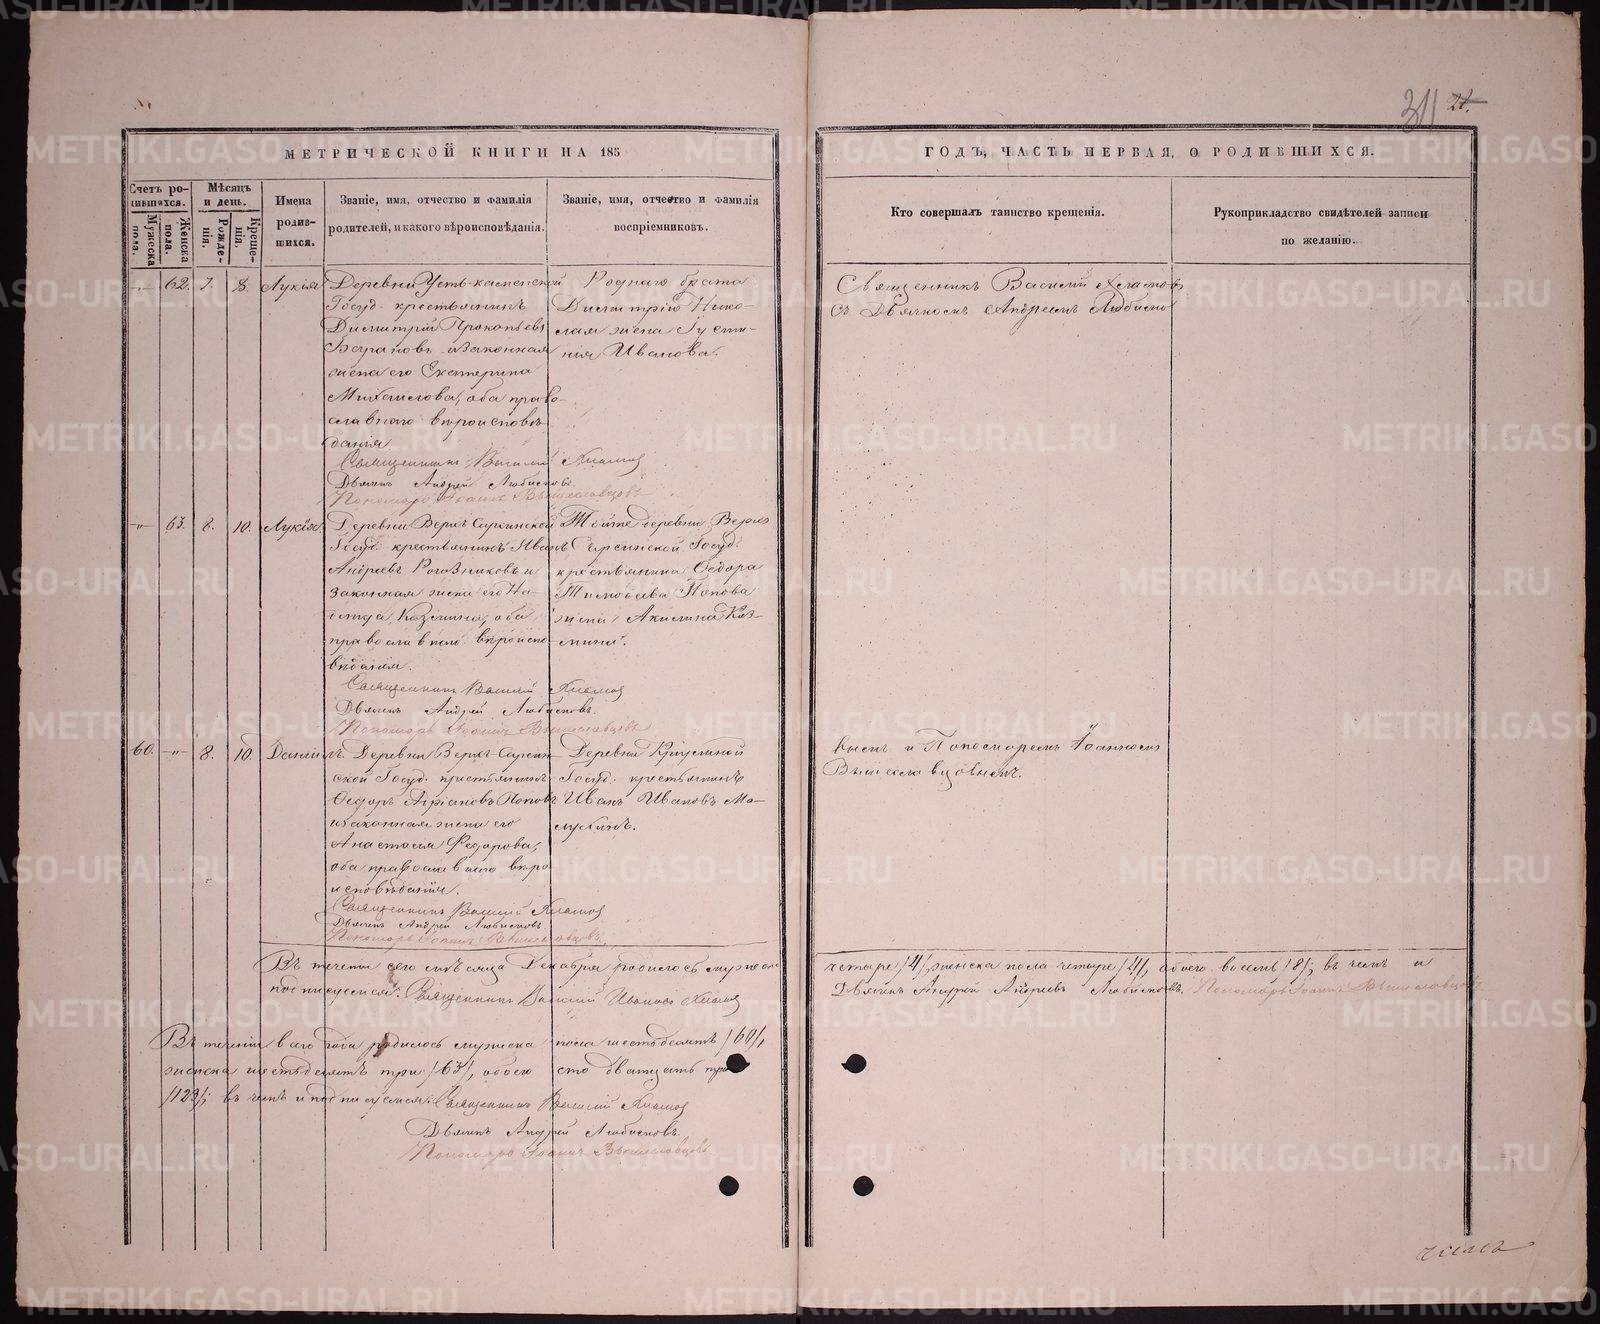 311 21.
МЕТРИЧЕСКОЙ КНИГИ НА 185
ГОДЪ, ЧАСТЬ ПЕРВАЯ, О РОДИВШИХСЯ.
Счетъ родившихся.
Мужеска пола.
Женска пола.
Мѣсяцъ и день.
Рожденія.
Крещенія.
Имена родившихся.
Званіе, имя, отчество и фамилія
родителей, и какого вѣроисповѣданія.
Званіе, имя, отчество и фамилія
воспріемниковъ.
Кто совершалъ таинство крещенія.
Рукоприкладство свидѣтелей записи
по желанію.
-"- 62. 7. 8. Лукія
Деревни
Госуд. крестьянинъ
Димитрій Прокопьевъ
и законная
жена его Екатерина
Михаилова, оба право-
славнаго вѣроисповѣ-
данія
Роднаго брата
Димитрію Нико-
лая жена Густи-
нія Иванова.
Священникъ Василій
съ Дьячкомъ Андреемъ
Священникъ Василій
Дьячекъ Андрей Любимовъ
Пономарь Іоаннъ Вышеславцовъ
-"- 63. 8. 10. Лукія.
Деревни Верхъ Саргинской
Госуд. крестьянинъ Иванъ
Андреевъ Рогозниковъ и
законная жена его На-
Козмина, оба
православнаго вѣроиспо-
вѣданія.
Той же деревни Верхъ
Саргинской Госуд.
крестьянина Ѳедора
Тимоѳеева Попова
жена Акилина Коз-
мина.
Священникъ Василій
Дьячекъ Андрей Любимовъ.
Пономарь Іоаннъ Вышеславцовъ
60. -"- 8. 10. Даніилъ.
Деревни Верхъ-Саргин-
ской Госуд. крестьянинъ
Ѳедоръ Поповъ
и законная жена его
Анастасія Ѳедорова,
оба православнаго вѣро
исповѣданія.
Деревни
Госуд. крестьянинъ
Иванъ Ивановъ Ма-
и Пономаремъ Іоанномъ
Вышеславцовымъ.
Священникъ Василій
Дьячекъ Андрей Любимовъ
Пономарь Іоаннъ Вышеславцовъ
Въ теченіи сего мѣсяца Декабря родилось мужеска
четыре /4/, женска пола четыре /4/, обоего восемь /8/; въ чемъ и
подписуемся: Священникъ Василій Ивановъ
Дьячекъ Андрей Андреевъ Любимовъ. Пономарь Іоаннъ Вышеславцовъ
Въ теченіи всего года родилось мужеска пола шестьдесятъ /60/,
женска шестьдесятъ три /63/, обоего сто двадцать три
/123/; въ чемъ и подписуемся: Священникъ Василій
Дьячекъ Андрей Любимовъ.
Пономарь Іоаннъ Вышеславцовъ
METRIKI.GASO-URAL.RU